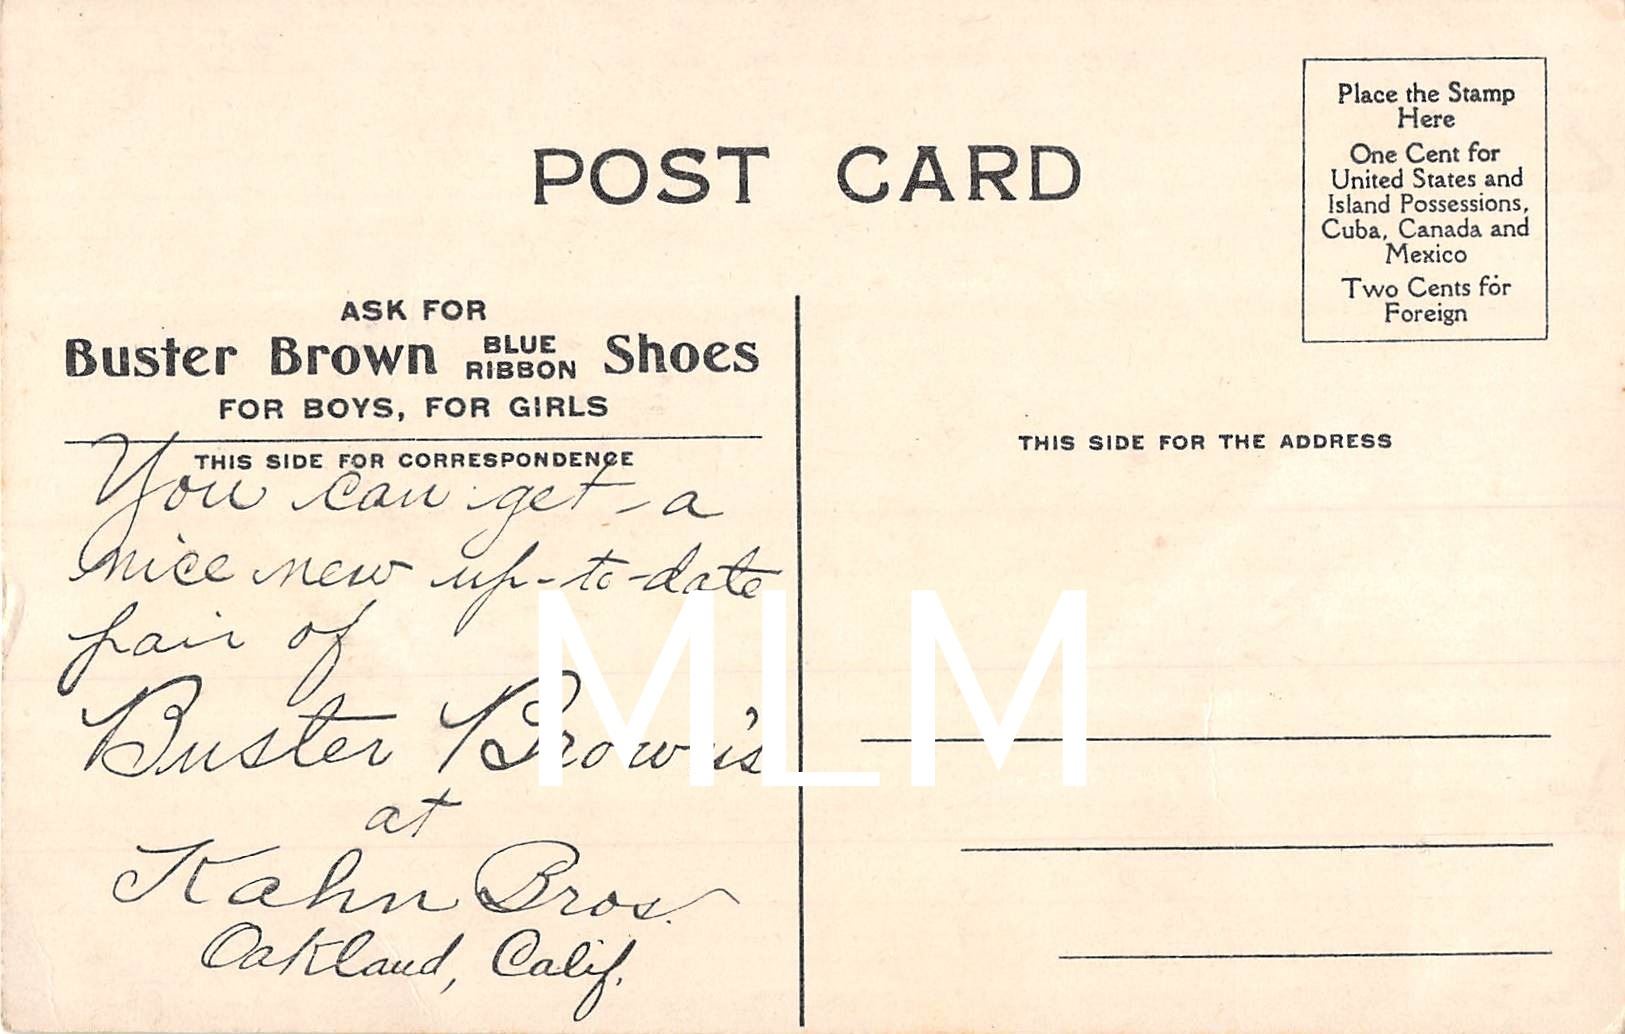 Place the Stamp
Here
One Cent for
United States and
Island Possessions,
Cuba, Canada and
Mexico
Two Cents for
Foreign
POST CARD
ASK FOR
Buster Brown BLUE RIBBON Shoes
FOR BOYS, FOR GIRLS
THIS SIDE FOR CORRESPONDENCE
You can get a
nice new up-to-date
pair of
Buster Brown's
at
Kahn Bros.
Oakland, Calif.
THIS SIDE FOR THE ADDRESS
MLM